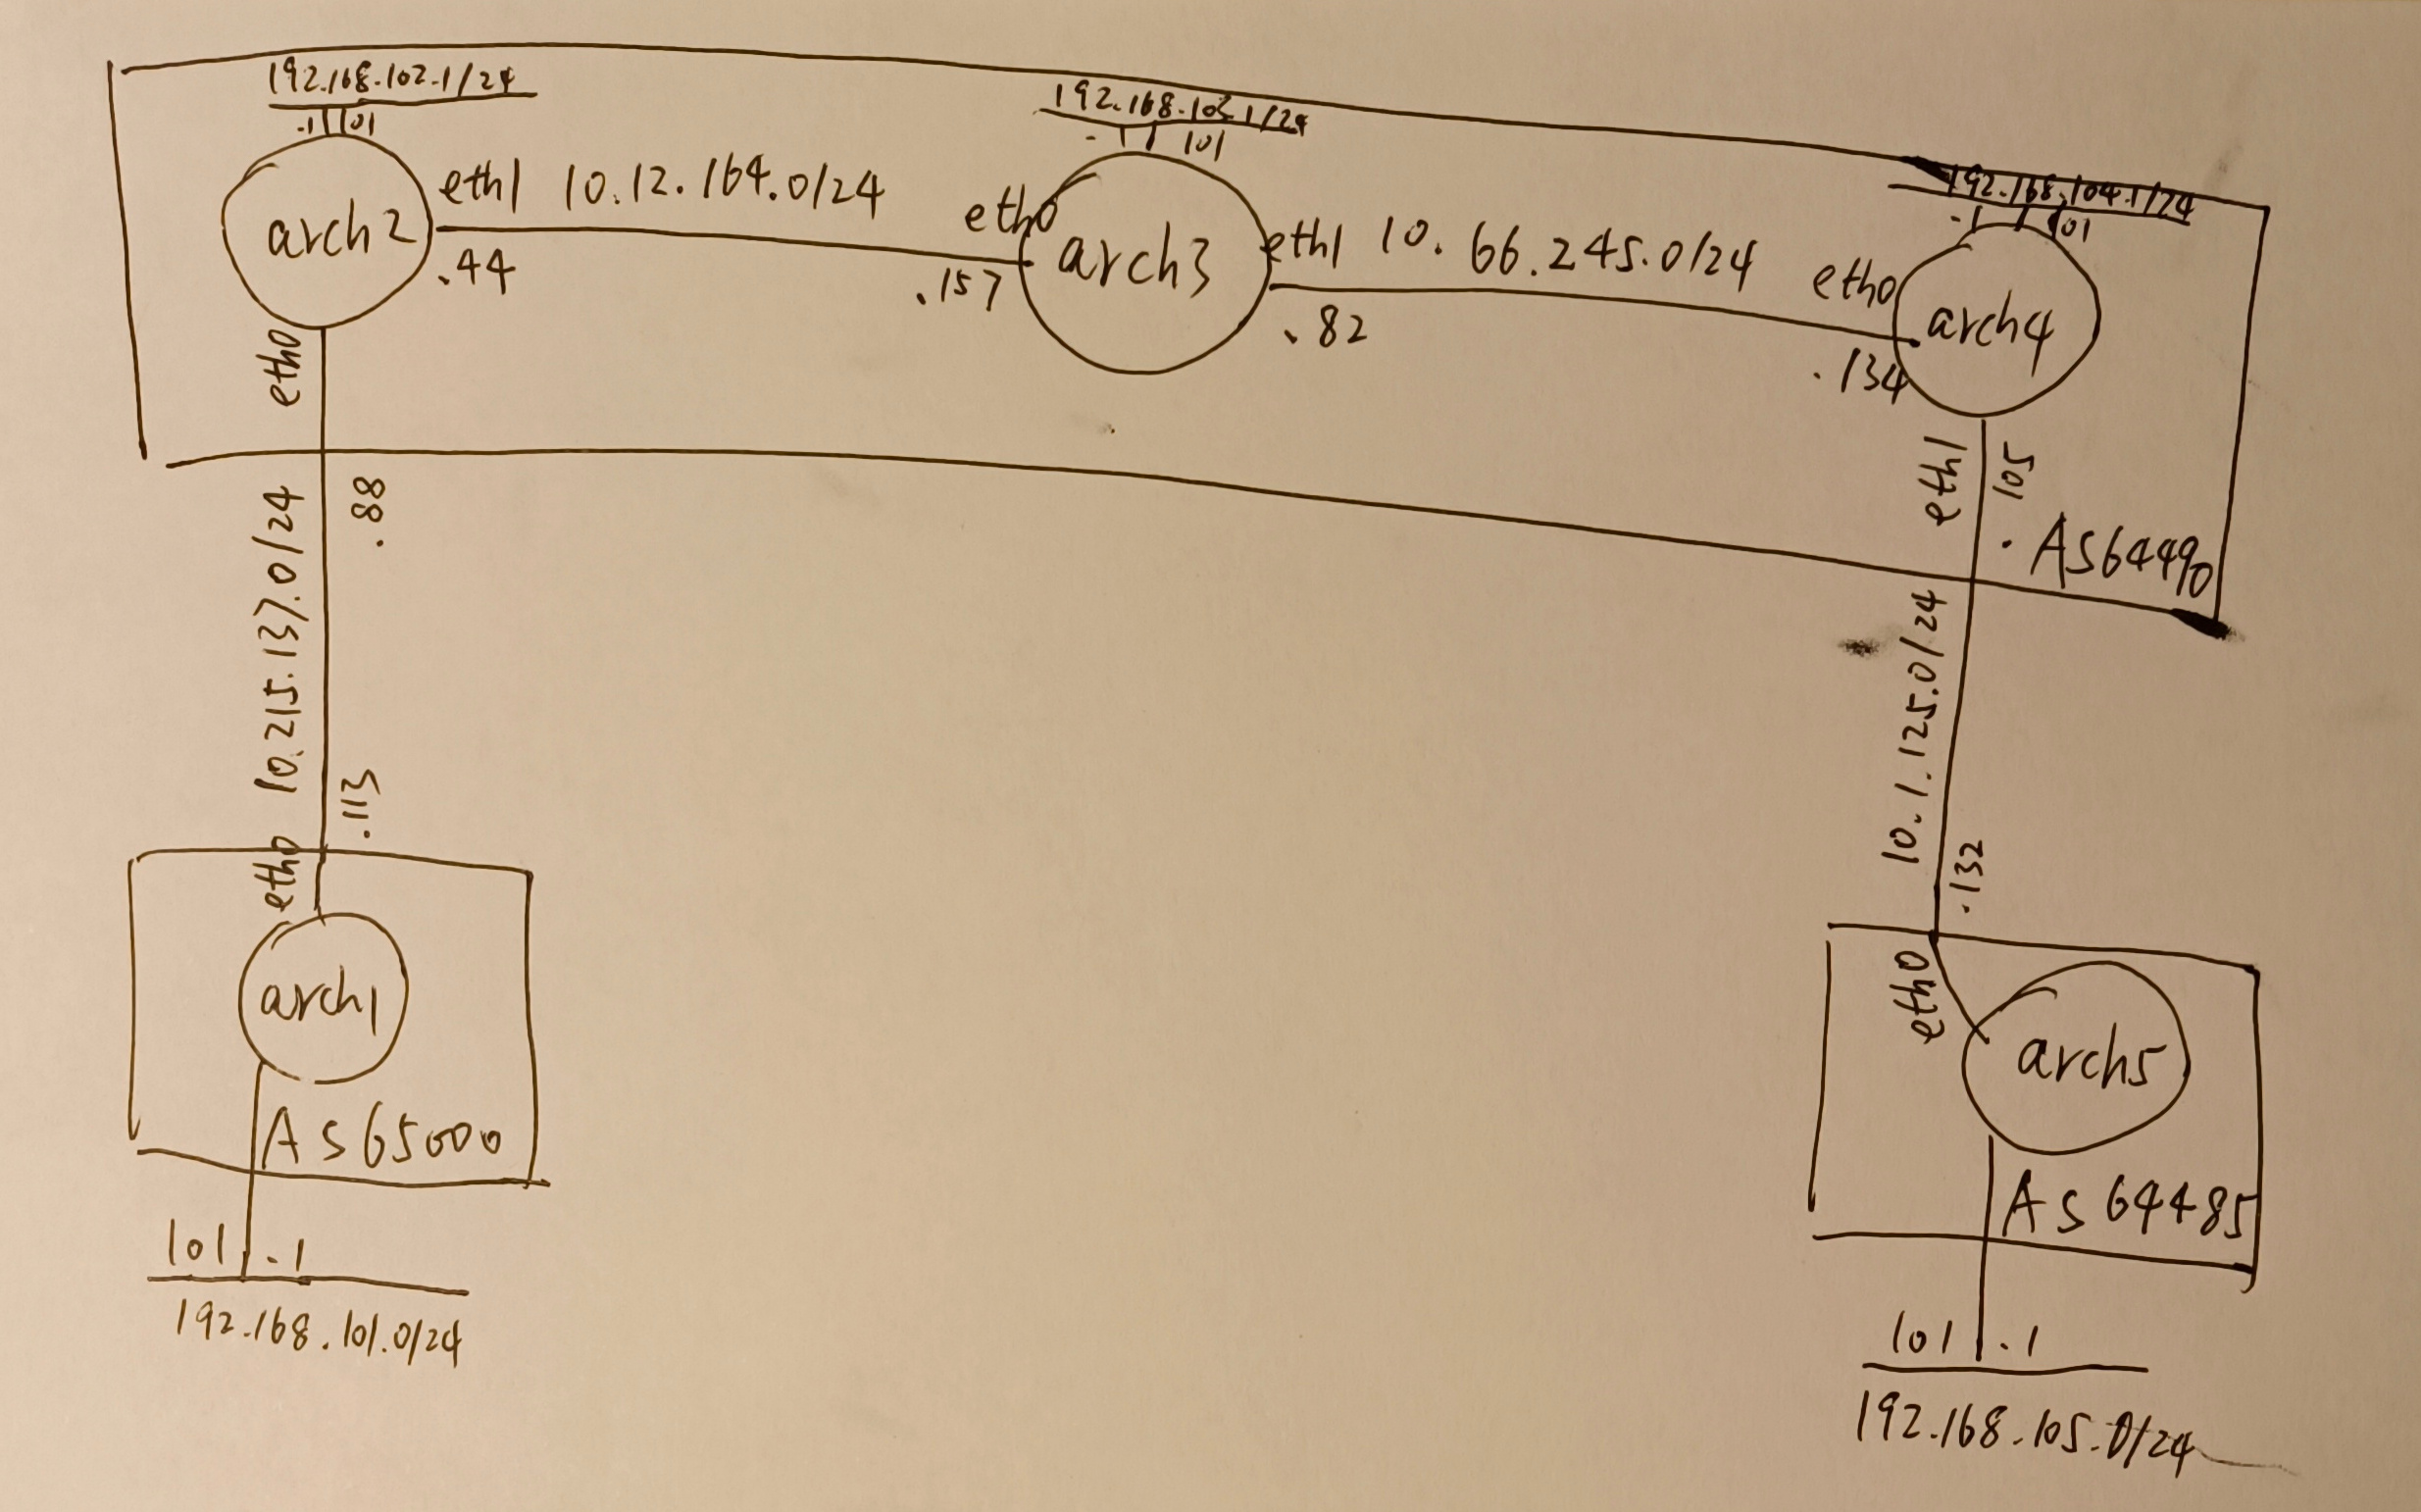 192.168.102.1/24
.1 101
arch2
eth1 10.12.164.0/24
.44
eth0
192.168.103.1/24
101
eth0
.157
arch3
eth1 10.66.245.0/24
.82
192.168.104.1/24
.1 101
eth0
.134
arch4
eth1
.105
AS64490
10.215.137.0/24
.88
.113
eth0
arch1
AS65000
101 .1
192.168.101.0/24
10.1.125.0/24
.132
eth0
arch5
AS64485
101 .1
192.168.105.0/24